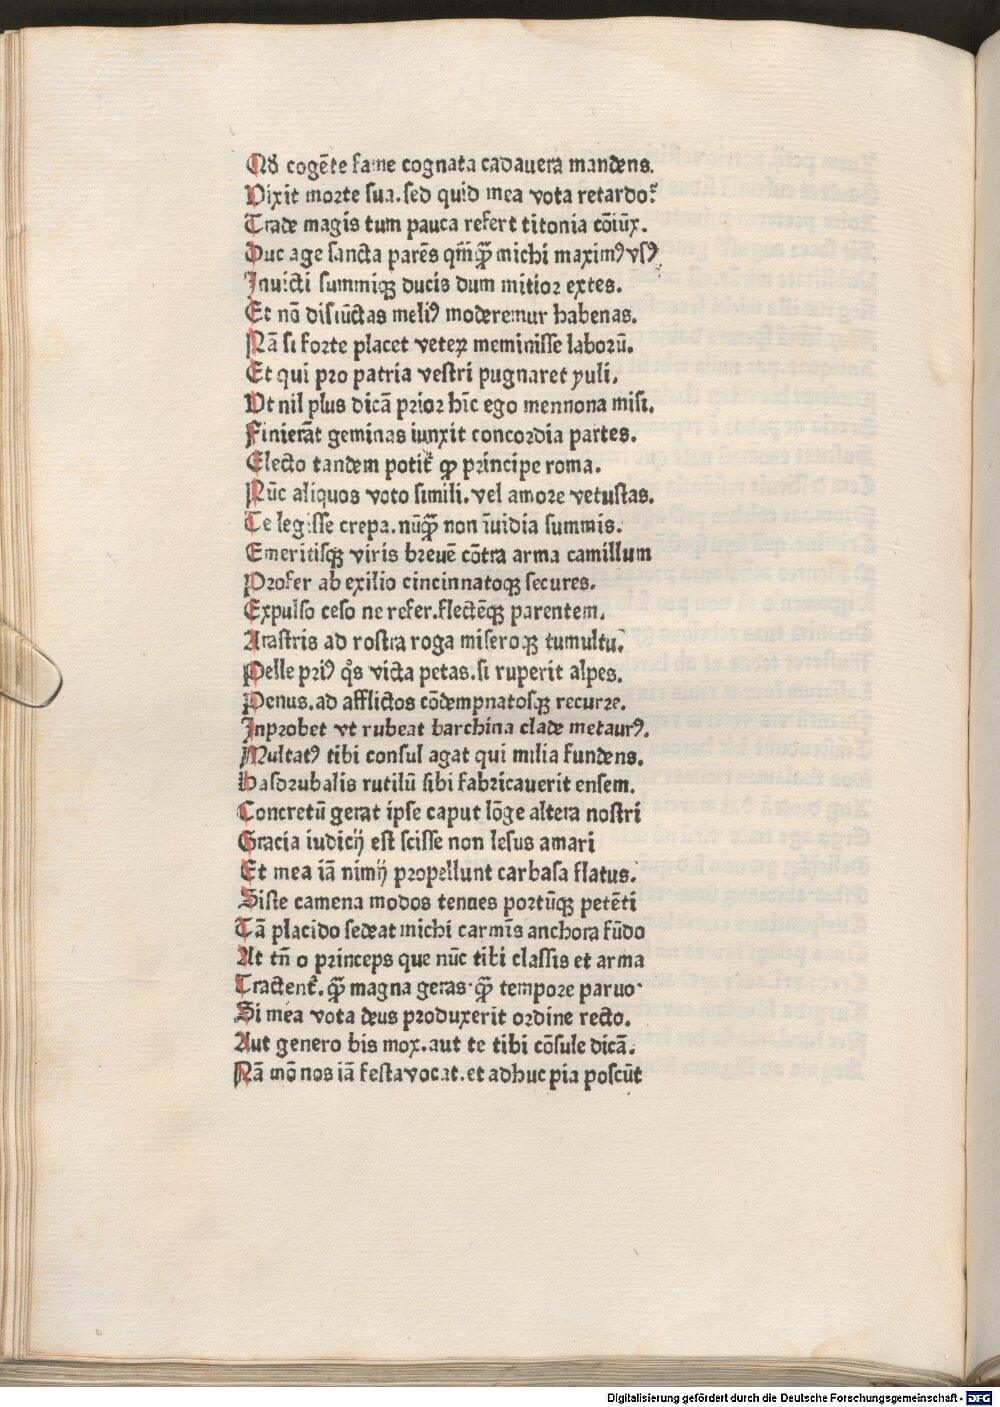 Qđ cogẽte fame cognata cadauera mandens.
Vixit morte sua. sed quid mea vota retardo?
Trade magis tum pauca refert titonia cõiũx.
Duc age sancta parẽs qm̃ꝙ̃ michi maximꝰ vsꝰ
Inuicti summiqꝫ ducis dum mitior extes.
Et nõ disiũctas meliꝰ moderemur habenas.
Nã si forte placet veteꝝ meminisse laborũ.
Et qui pro patria vestri pugnaret yuli,
Vt nil plus dicã prior hĩc ego mennona misi.
Finierãt geminas iunxit concordia partes.
Electo tandem potit̃ ꝙ principe roma.
Nũc aliquos voto simili. vel amore vetustas.
Te legisse crepa. nũꝙ̃ non ĩuidia summis.
Emeritisqꝫ viris breuẽ cõtra arma camillum
Profer ab exilio cincinnatoqꝫ secures.
Expulso ceso ne refer. flectẽqꝫ parentem.
Arastris ad rostra roga miseroqꝫ tumultu.
Pelle priꝰ q̊s victa petas. si ruperit alpes.
Penus. ad afflictos cõdempnatosqꝫ recurre.
Inprobet vt rubeat barchina clade metaurꝰ.
Multatꝰ tibi consul agat qui milia fundens.
Hasdrubalis rutilũ sibi fabricauerit ensem.
Concretũ gerat ipse caput lõge altera nostri
Gracia iudicij est scisse non lesus amari
Et mea iã nimij propellunt carbasa flatus.
Siste camena modos tennes portũqꝫ petẽti
Tã placido sedeat michi carmĩs anchora fũdo
At tñ o princeps que nũc tibi classis et arma
Tractent̃. ꝙ̃ magna geras. ꝙ̃ tempore paruo.
Si mea vota deus produxerit ordine recto.
Aut genero bis mox. aut te tibi cõsule dicã.
Nã mõ nos iã festa vocat. et adhuc pia poscũt
Digitalisierung gefördert durch die Deutsche Forschungsgemeinschaft - DFG